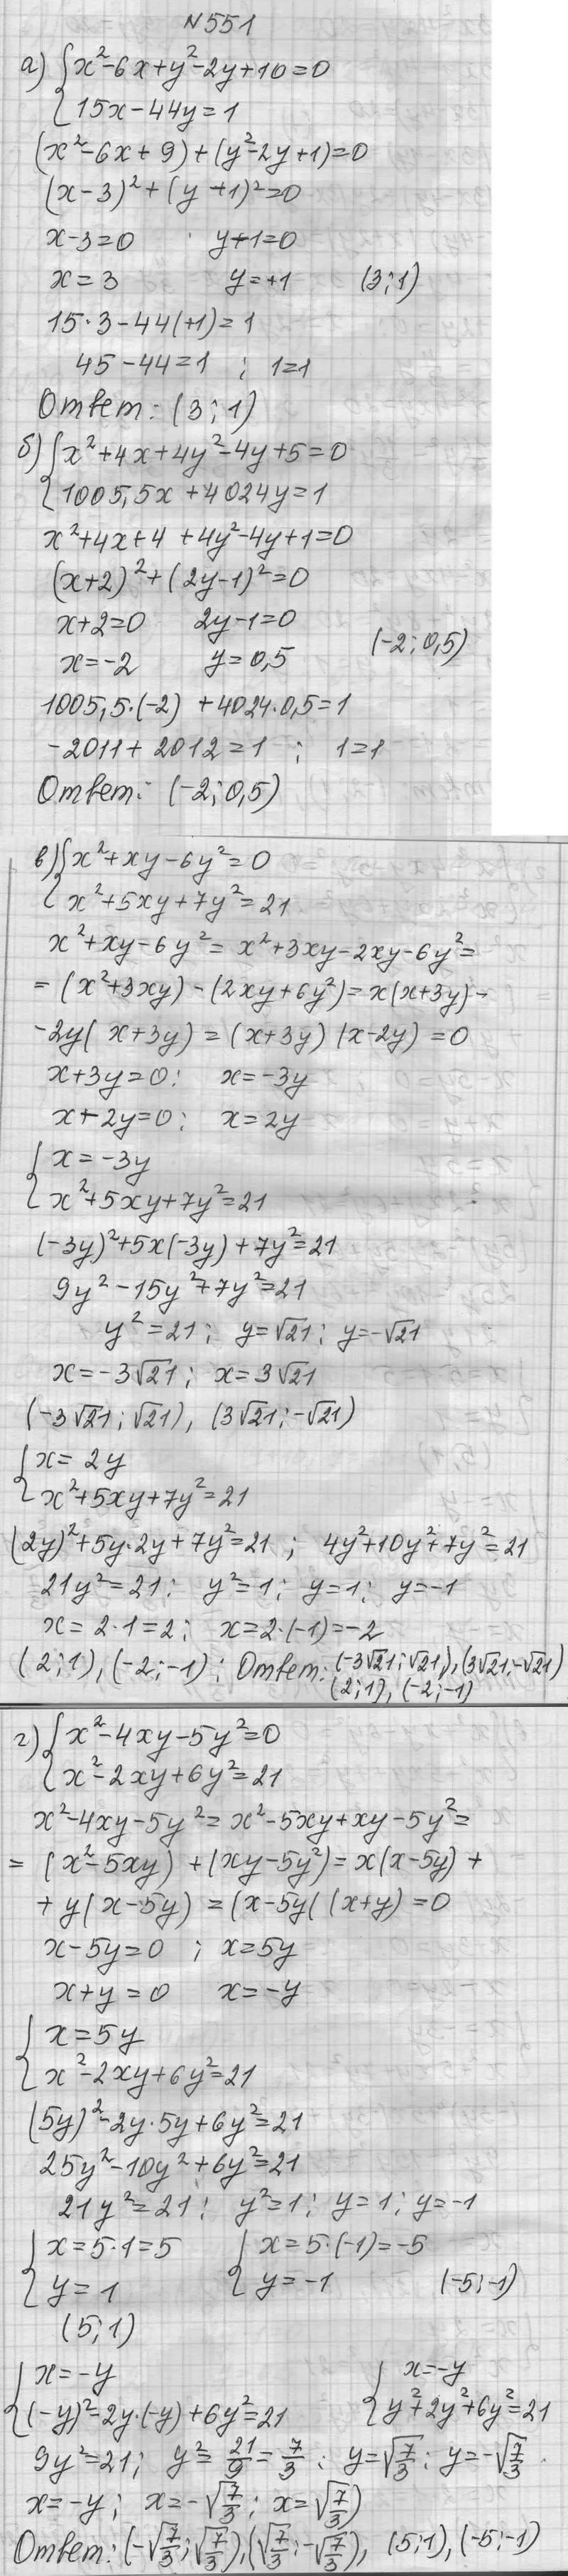 №551
а) { x²-6x+y²-2y+10=0
15x-44y=1
(x²-6x+9)+(y²-2y+1)=0
(x-3)²+(y+1)²=0
x-3=0 y+1=0
x=3 y=+1 (3;1)
15·3-44(+1)=1
45-44=1 ; 1=1
Ответ: (3;1)
б) { x²+4x+4y²-4y+5=0
1005,5x+4024y=1
x²+4x+4+4y²-4y+1=0
(x+2)²+(2y-1)²=0
x+2=0 2y-1=0
x=-2 y=0,5 (-2;0,5)
1005,5·(-2)+4024·0,5=1
-2011+2012=1 ; 1=1
Ответ: (-2;0,5)
в) { x²+xy-6y²=0
x²+5xy+7y²=21
x²+xy-6y²=x²+3xy-2xy-6y²=
=(x²+3xy)-(2xy+6y²)=x(x+3y)-
-2y(x+3y)=(x+3y)(x-2y)=0
x+3y=0; x=-3y
x+2y=0; x=2y
{ x=-3y
x²+5xy+7y²=21
(-3y)²+5x(-3y)+7y²=21
9y²-15y²+7y²=21
y²=21; y=√21; y=-√21
x=-3√21; x=3√21
(-3√21;√21), (3√21;-√21)
{ x=2y
x²+5xy+7y²=21
(2y)²+5y·2y+7y²=21 ; 4y²+10y²+7y²=21
21y²=21; y²=1; y=1; y=-1
x=2·1=2; x=2·(-1)=-2
(2;1),(-2;-1); Ответ: (-3√21;√21),(3√21;-√21)
(2;1), (-2;-1)
г) { x²-4xy-5y²=0
x²-2xy+6y²=21
x²-4xy-5y²=x²-5xy+xy-5y²=
=(x²-5xy)+(xy-5y²)=x(x-5y)+
+y(x-5y)=(x-5y((x+y)=0
x-5y=0 ; x=5y
x+y=0 x=-y
{ x=5y
x²-2xy+6y²=21
(5y)²-2y·5y+6y²=21
25y²-10y²+6y²=21
21y²=21; y²=1; y=1; y=-1
{ x=5·1=5 { x=5·(-1)=-5
y=1 y=-1 (-5;-1)
(5;1)
{ x=-y { x=-y
(-y)²-2y·(-y)+6y²=21 y²+2y²+6y²=21
9y²=21; y²=21/9=7/3; y=√7/3; y=-√7/3.
x=-y; x=-√7/3; x=√7/3)
Ответ: (-√7/3;√7/3),(√7/3;-√7/3), (5;1),(-5;-1)